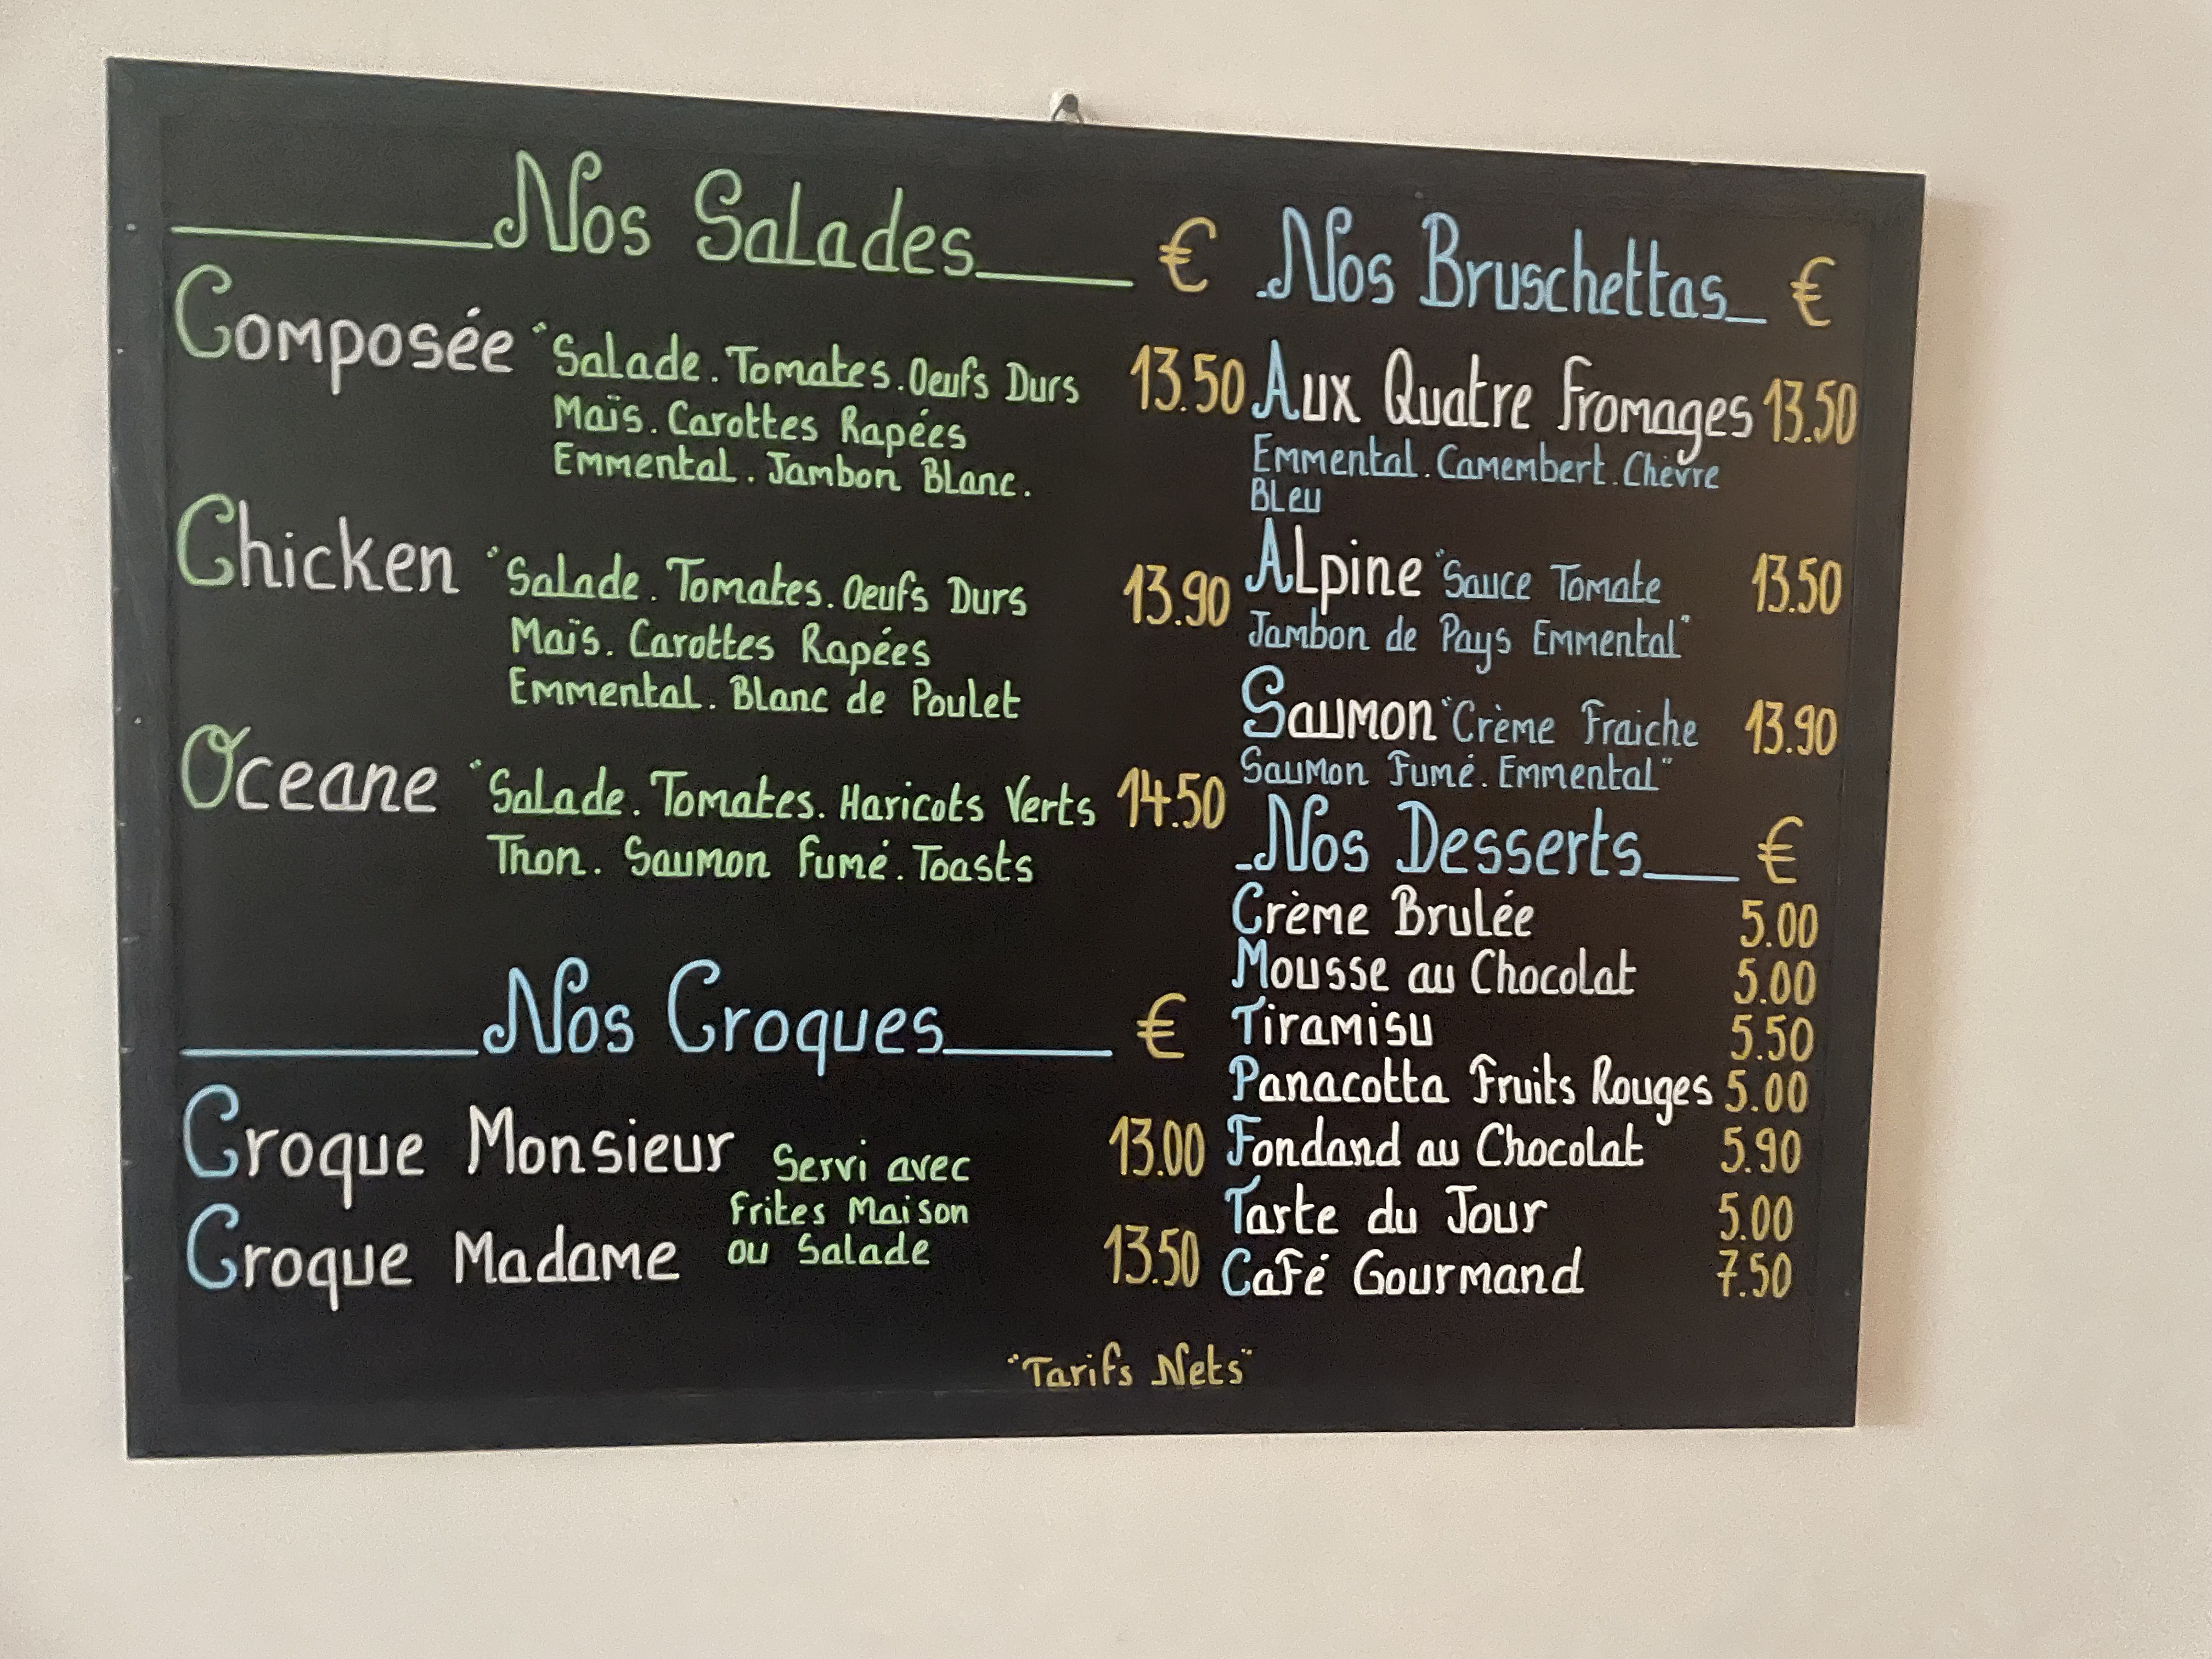 Nos Salades €
Composée "Salade. Tomates. Oeufs Durs 13.50
Maïs. Carottes Rapées
Emmental. Jambon Blanc.
Chicken "Salade. Tomates. Oeufs Durs 13.90
Maïs. Carottes Rapées
Emmental. Blanc de Poulet
Oceane "Salade. Tomates. Haricots Verts 14.50
Thon. Saumon Fumé. Toasts
Nos Croques €
Croque Monsieur Servi avec 13.00
Frites Maison
Croque Madame ou Salade 13.50
Nos Bruschettas €
Aux Quatre Fromages 13.50
Emmental. Camembert. Chèvre
Bleu
Alpine "Sauce Tomate 13.50
Jambon de Pays Emmental"
Saumon "Crème Fraiche 13.90
Saumon Fumé. Emmental"
Nos Desserts €
Crème Brulée 5.00
Mousse au Chocolat 5.00
Tiramisu 5.50
Panacotta Fruits Rouges 5.00
Fondand au Chocolat 5.90
Tarte du Jour 5.00
Café Gourmand 7.50
"Tarifs Nets"